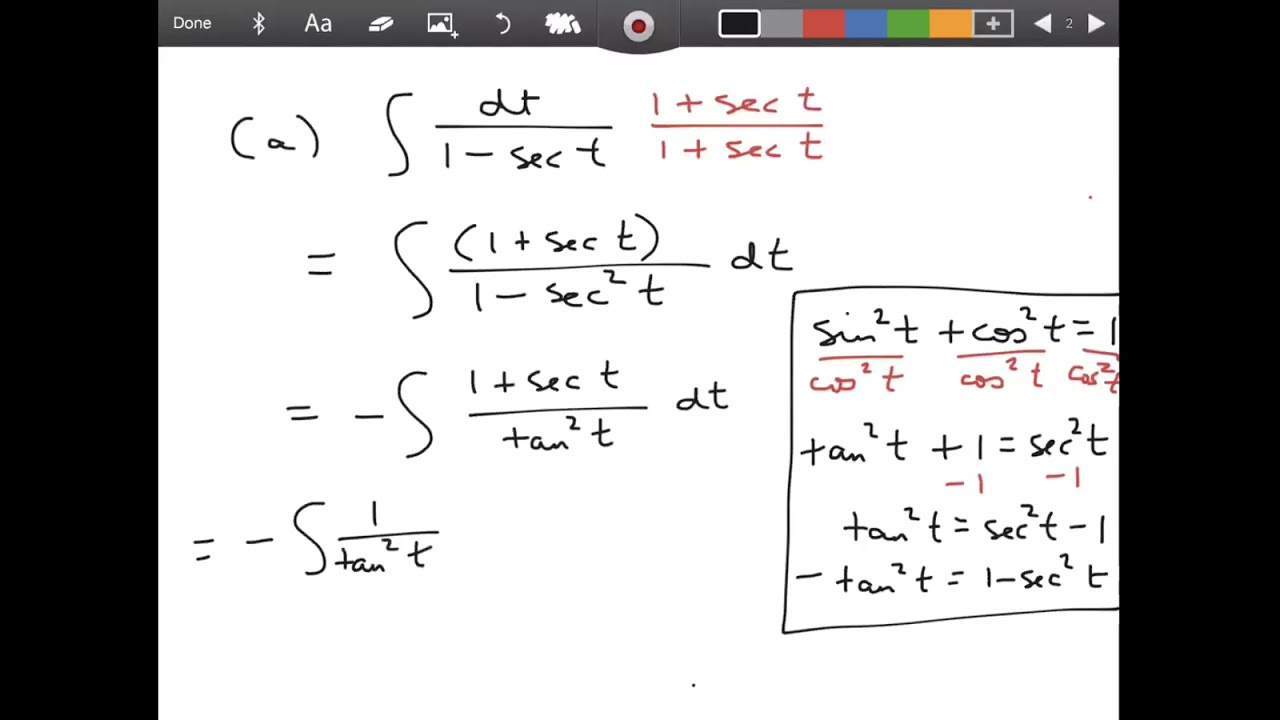 Done Aa 2
(a) ∫ dt / (1 − sec t) (1 + sec t) / (1 + sec t)
= ∫ (1 + sec t) / (1 − sec² t) dt
= − ∫ (1 + sec t) / (tan² t) dt
= − ∫ 1 / (tan² t)
sin² t + cos² t = 1
cos² t cos² t cos² t
tan² t + 1 = sec² t
−1 −1
tan² t = sec² t − 1
− tan² t = 1 − sec² t